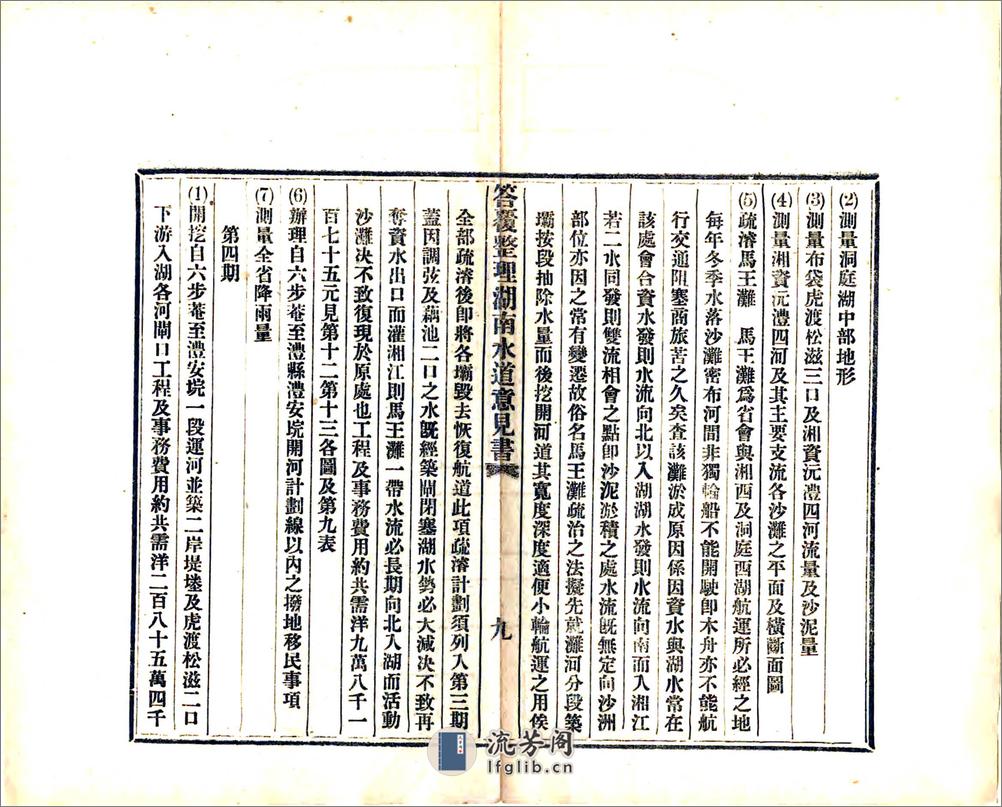 ⑵測量洞庭湖中部地形
⑶測量布袋虎渡松滋三口及湘資沅澧四河流量及沙泥量
⑷測量湘資沅澧四河及其主要支流各沙灘之平面及橫斷面圖
⑸疏濬馬王灘　馬王灘爲省會與湘西及洞庭西湖航運所必經之地
每年冬季水落沙灘密布河間非獨輪船不能開駛卽木舟亦不能航
行交通阻塞商旅苦之久矣查該灘淤成原因係因資水與湖水常在
該處會合資水發則水流向北以入湖湖水發則水流向南而入湘江
若二水同發則雙流相會之點卽沙泥淤積之處水流旣無定向沙洲
部位亦因之常有變遷故俗名馬王灘疏治之法擬先就灘河分段築
壩按段抽除水量而後挖開河道其寬度深度適便小輪航運之用俟
答覆整理湖南水道意見書　九
全部疏濬後卽將各壩毀去恢復航道此項疏濬計劃須列入第三期
蓋因調弦及藕池二口之水旣經築閘閉塞湖水勢必大減决不致再
奪資水出口而灌湘江則馬王灘一帶水流必長期向北入湖而活動
沙灘决不致復現於原處也工程及事務費用約共需洋九萬八千一
百七十五元見第十二第十三各圖及第九表
⑹辦理自六步菴至澧縣澧安垸開河計劃線以內之撥地移民事項
⑺測量全省降雨量
第四期
⑴開挖自六步菴至澧安垸一段運河並築二岸堤塍及虎渡松滋二口
下游入湖各河閘口工程及事務費用約共需洋二百八十五萬四千
流芳阁
lfglib.cn